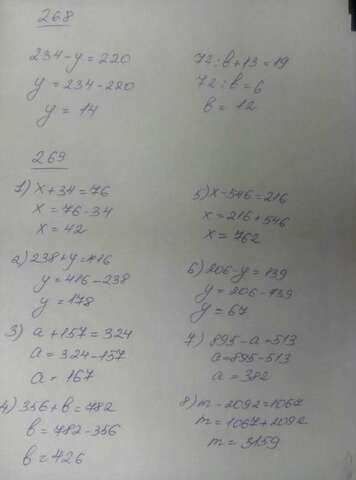 268
234-y=220
y=234-220
y=14
72:в+13=19
72:в=6
в=12
269
1) x+34=76
x=76-34
x=42
2) 238+y=416
y=416-238
y=178
3) a+157=324
a=324-157
a=167
4) 356+в=782
в=782-356
в=426
5) x-546=216
x=216+546
x=762
6) 206-y=139
y=206-139
y=67
7) 895-a=513
a=895-513
a=382
8) m-2092=1067
m=1067+2092
m=3159